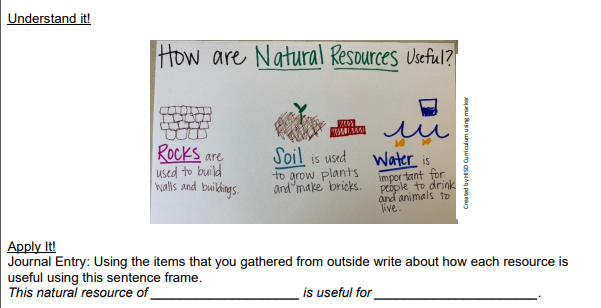 Understand it!
How are Natural Resources Useful?
Rocks are
used to build
walls and buildings.
Soil is used
to grow plants
and make bricks.
Water is
important for
people to drink
and animals to
live.
Created by HISD Curriculum using marker
Apply It!
Journal Entry: Using the items that you gathered from outside write about how each resource is
useful using this sentence frame.
This natural resource of ____________________ is useful for ______________________.